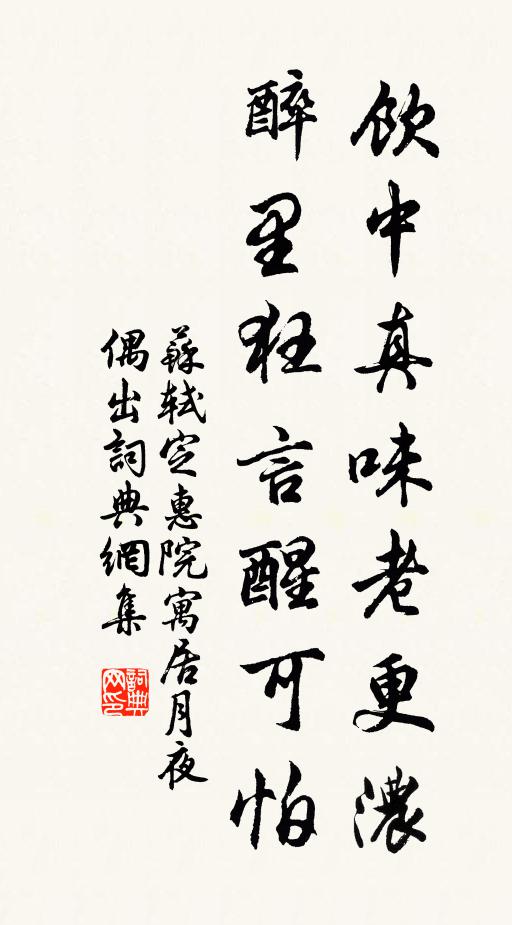 飲中真味老更濃
醉里狂言醒可怕
蘇軾定惠院寓居月夜
偶出詞典網集
詞典網印